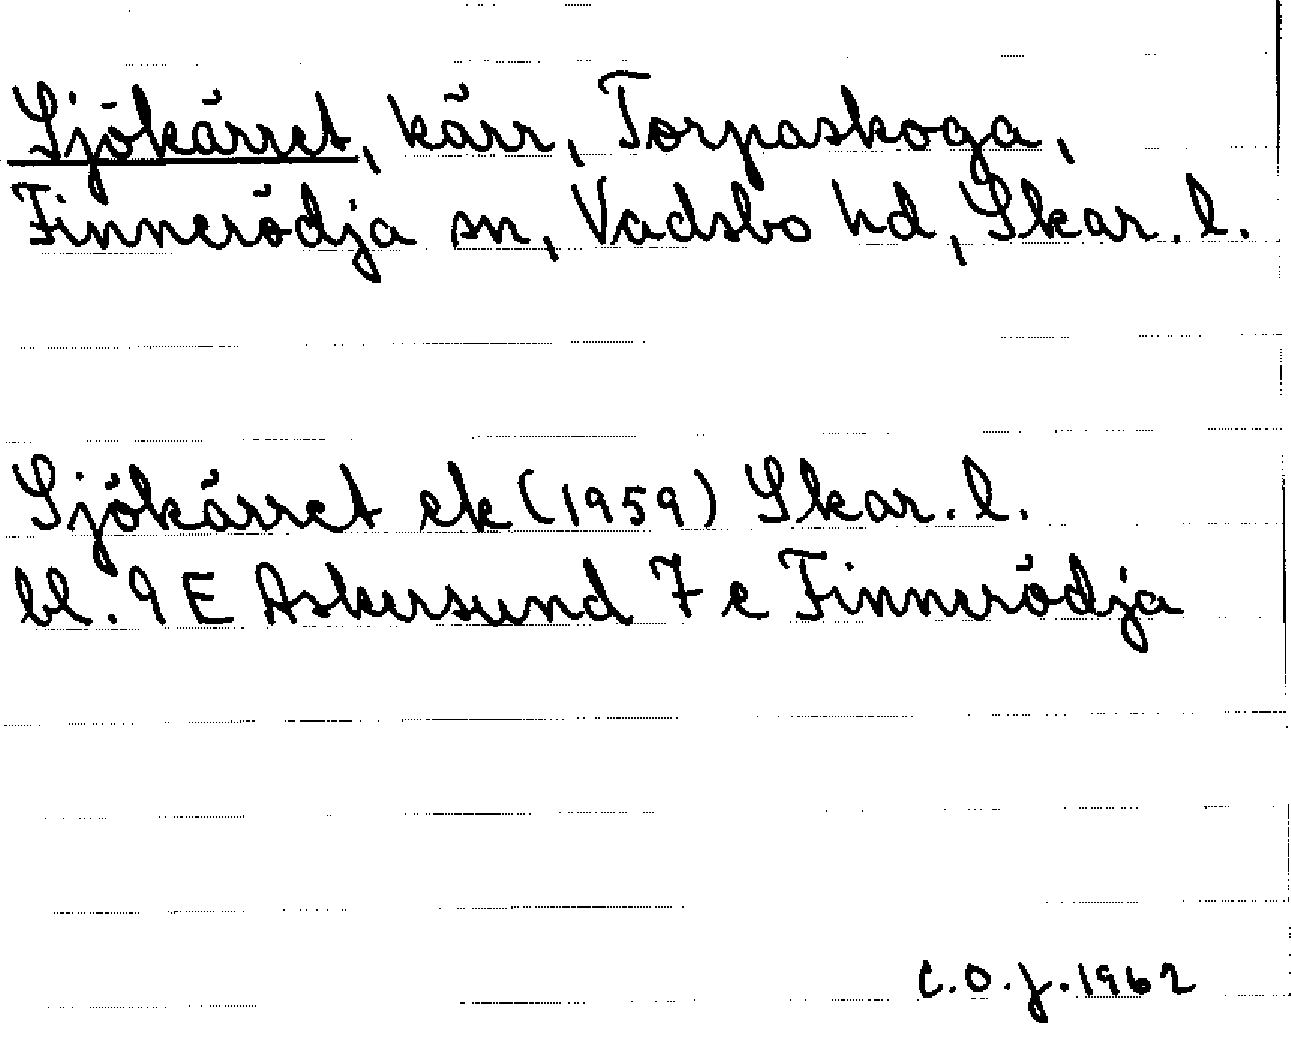 Sjökärret, kärr, Torpaskoga,
Finnerödja sn, Vadsbo hd, Skar. l.
Sjökärret ek (1959) Skar. l.
bl. 9 E Askersund 7 e Finnerödja
C.O.J. 1962